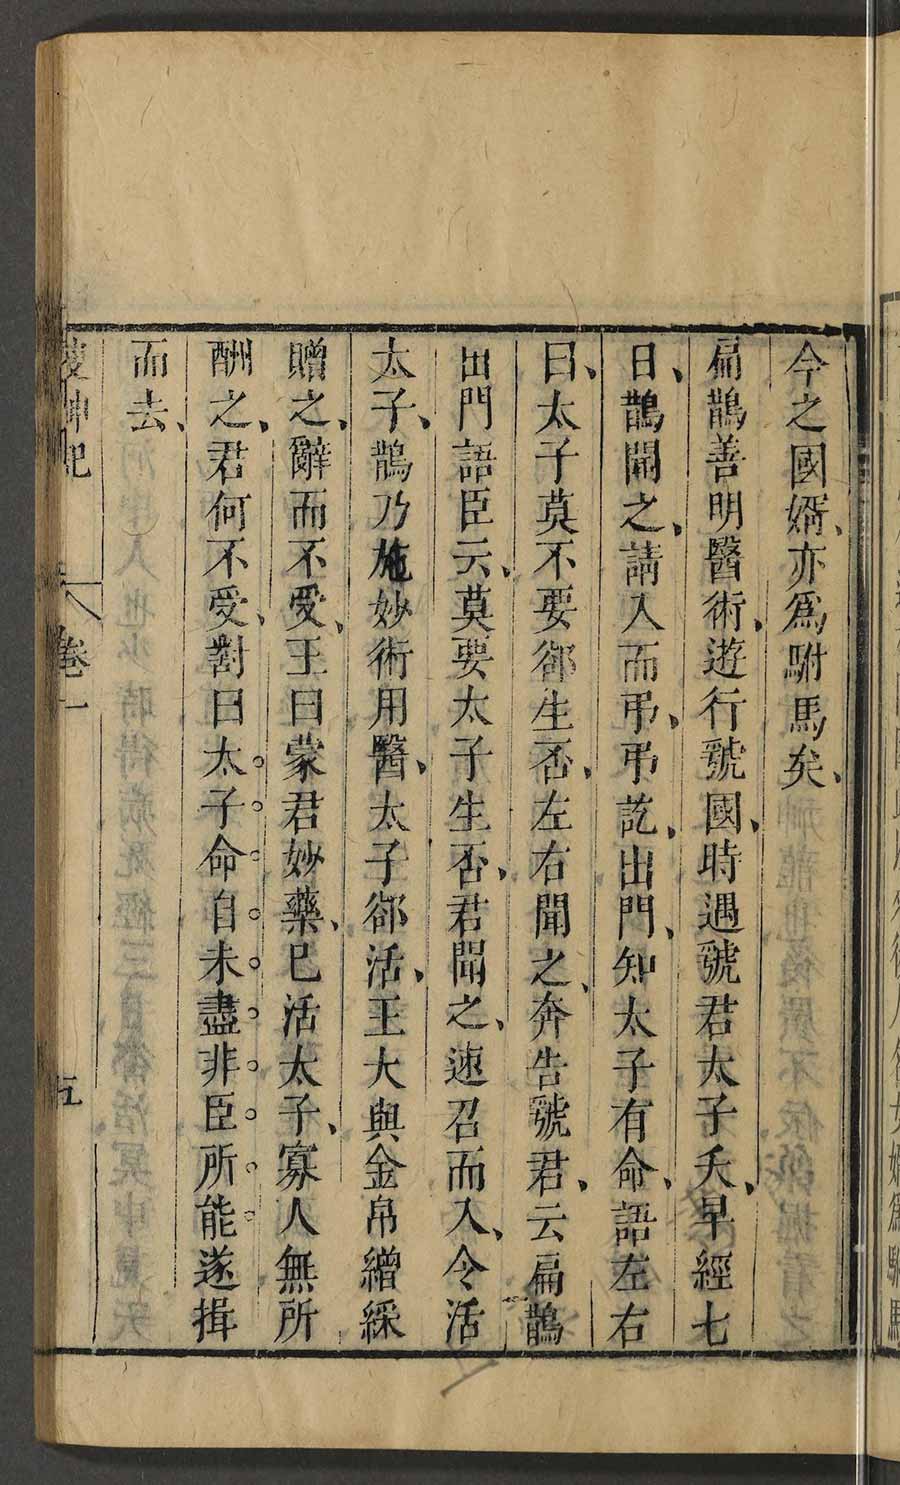 今之國婿、亦爲駙馬矣、
扁鵲善明醫術、遊行虢國、時遇虢君太子夭、早經七
日、鵲聞之、請入而弔、弔訖、出門、知太子有命、語左右
曰、太子莫不要郤生否、左右聞之、奔告虢君、云扁鵲
出門語臣云、莫要太子生否、君聞之、速召而入、令活
太子、鵲乃施妙術用醫、太子郤活、王大與金帛繒綵
贈之、辭而不受、王曰蒙君妙藥、巳活太子、寡人無所
酬之、君何不受、對曰太子命自未盡非臣所能遂揖
而去、
搜神記 卷一 五